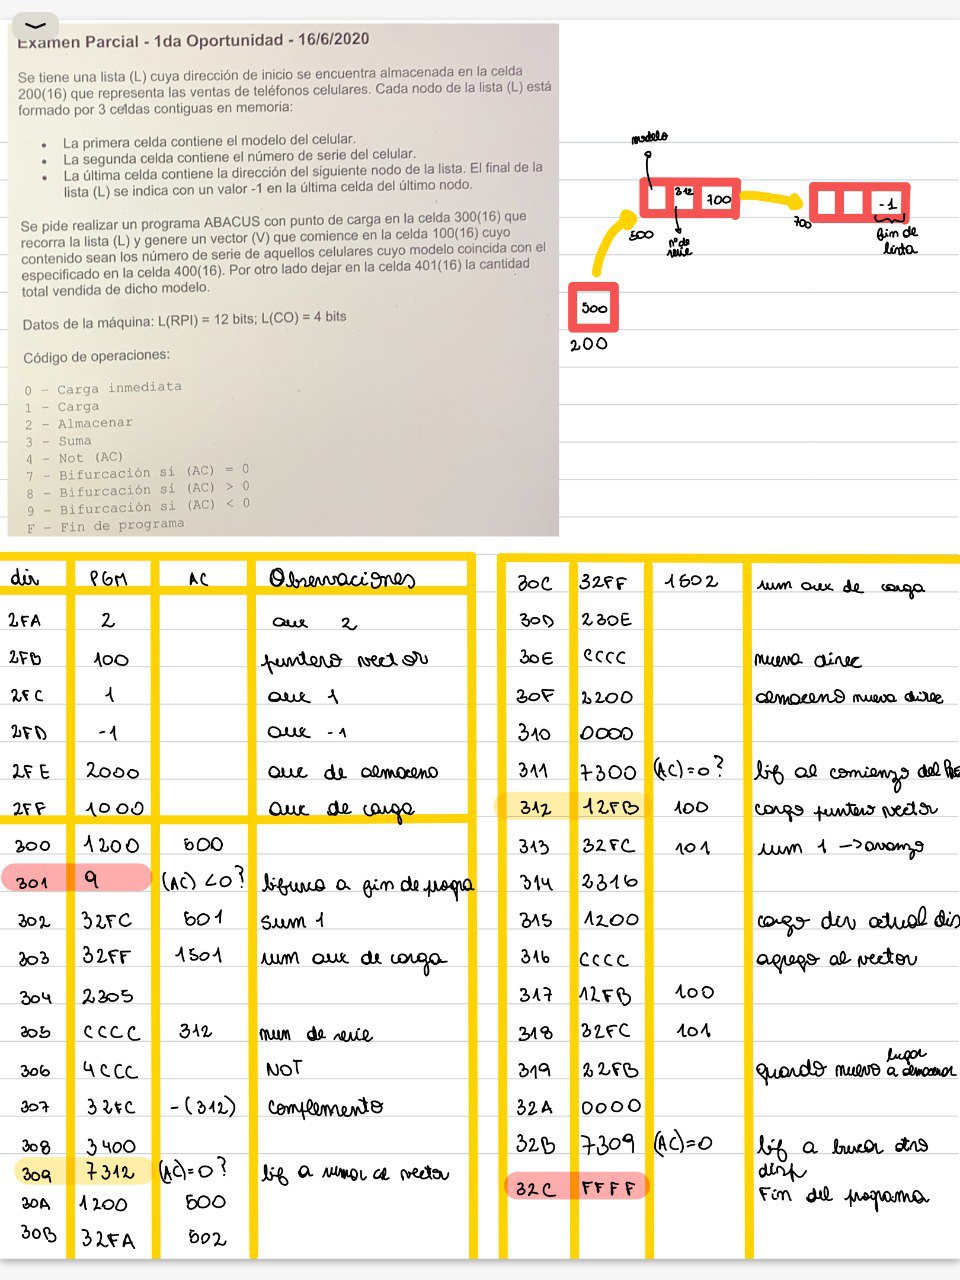 Examen Parcial - 1da Oportunidad - 16/6/2020
Se tiene una lista (L) cuya dirección de inicio se encuentra almacenada en la celda
200(16) que representa las ventas de teléfonos celulares. Cada nodo de la lista (L) está
formado por 3 celdas contiguas en memoria:
• La primera celda contiene el modelo del celular.
• La segunda celda contiene el número de serie del celular.
• La última celda contiene la dirección del siguiente nodo de la lista. El final de la
lista (L) se indica con un valor -1 en la última celda del último nodo.
Se pide realizar un programa ABACUS con punto de carga en la celda 300(16) que
recorra la lista (L) y genere un vector (V) que comience en la celda 100(16) cuyo
contenido sean los número de serie de aquellos celulares cuyo modelo coincida con el
especificado en la celda 400(16). Por otro lado dejar en la celda 401(16) la cantidad
total vendida de dicho modelo.
Datos de la máquina: L(RPI) = 12 bits; L(CO) = 4 bits
Código de operaciones:
0 - Carga inmediata
1 - Carga
2 - Almacenar
3 - Suma
4 - Not (AC)
7 - Bifurcación si (AC) = 0
8 - Bifurcación si (AC) > 0
9 - Bifurcación si (AC) < 0
F - Fin de programa
modelo
312 700
500
nº de
serie
-1
700
fin de
lista
500
200
dir PGM AC Observaciones
2FA 2 aux 2
2FB 100 puntero vector
2FC 1 aux 1
2FD -1 aux -1
2FE 2000 aux de almaceno
2FF 1000 aux de carga
300 1200 500
301 9 (AC) <0? bifurco a fin de progra
302 32FC 501 sum 1
303 32FF 1501 sum aux de carga
304 2305
305 CCCC 312 num de serie
306 4CCC NOT
307 32FC -(312) complemento
308 3400
309 7312 (AC)=0? bif a sumar al vector
30A 1200 500
30B 32FA 502
30C 32FF 1502 sum aux de carga
30D 230E
30E CCCC nueva direc
30F 2200 almaceno nueva direc
310 0000
311 7300 (AC)=0? bif al comienzo del
312 12FB 100 cargo puntero vector
313 32FC 101 sum 1 → avanzo
314 2316
315 1200 cargo dir actual
316 CCCC agrego al vector
317 12FB 100
318 32FC 101
319 22FB guardo nuevo lugar a almacenar
32A 0000
32B 7309 (AC)=0 bif a buscar otro
disp
32C FFFF Fin del programa